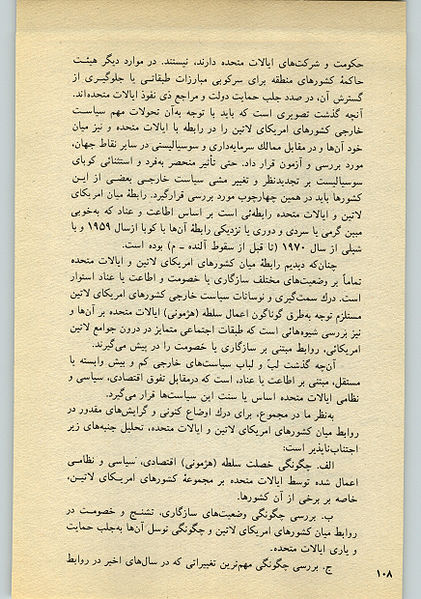 حکومت و شرکت‌های ایالات متحده دارند، نیستند. در موارد دیگر هیئت
حاکمهٔ کشورهای منطقه برای سرکوبی مبارزات طبقاتی یا جلوگیری از
گسترش آن، در صدد جلب حمایت دولت و مراجع ذی نفوذ ایالات متحده‌اند.
آنچه گذشت تصویری است که باید با توجه به‌آن تحولات مهم سیاست
خارجی کشورهای امریکای لاتین را در رابطه با ایالات متحده و نیز میان
خود آن‌ها و در مقابل ممالک سرمایه‌داری و سوسیالیستی در سایر نقاط جهان،
مورد بررسی و آزمون قرار داد. حتی تأثیر منحصر به‌فرد و استثنائی کوبای
سوسیالیست بر تجدیدنظر و تغییر مشی سیاست خارجی بعضی از این
کشورها باید در همین چهارچوب مورد بررسی قرارگیرد. رابطهٔ میان امریکای
لاتین و ایالات متحده رابطه‌ئی است بر اساس اطاعت و عناد که به‌خوبی
مبین گرمی یا سردی و دوری یا نزدیکی رابطهٔ آن‌ها با کوبا ازسال ۱۹۵۹ و با
شیلی از سال ۱۹۷۰ (تا قبل از سقوط آلنده - م) بوده است.
چنان‌که دیدیم رابطهٔ میان کشورهای امریکای لاتین و ایالات متحده
تماماً بر وضعیت‌های مختلف سازگاری یا خصومت و اطاعت یا عناد استوار
است. درك سمت‌گیری و نوسانات سیاست خارجی کشورهای امریکای لاتین
مستلزم توجه به‌طرق گوناگون اعمال سلطه (هژمونی) ایالات متحده بر آن‌ها و
نیز بررسی شیوه‌هائی است که طبقات اجتماعی متمایز در درون جوامع لاتین
امریکائی، روابط مبتنی بر سازگاری یا خصومت را در پیش می‌گیرند.
آن‌چه گذشت لبّ و لباب سیاست‌های خارجی کم و بیش وابسته یا
مستقل، مبتنی بر اطاعت یا عناد، است که درمقابل تفوق اقتصادی، سیاسی و
نظامی ایالات متحده اساس یا سنت این سیاست‌ها قرار می‌گیرد.
به‌نظر ما در مجموع، برای درك اوضاع کنونی و گرایش‌های مقدور در
روابط میان کشورهای امریکای لاتین و ایالات متحده، تحلیل جنبه‌های زیر
اجتناب‌ناپذیر است:
الف. چگونگی خصلت سلطه (هژمونی) اقتصادی، سیاسی و نظامی
اعمال شده توسط ایالات متحده بر مجموعهٔ کشورهای امریکای لاتین،
خاصه بر برخی از آن کشورها.
ب. بررسی چگونگی وضعیت‌های سازگاری، تشنج و خصومت در
روابط میان کشورهای امریکای لاتین و چگونگی توسل آن‌ها به‌جلب حمایت
و یاری ایالات متحده.
ج. بررسی چگونگی مهم‌ترین تغییراتی که در سال‌های اخیر در روابط
۱۰۸